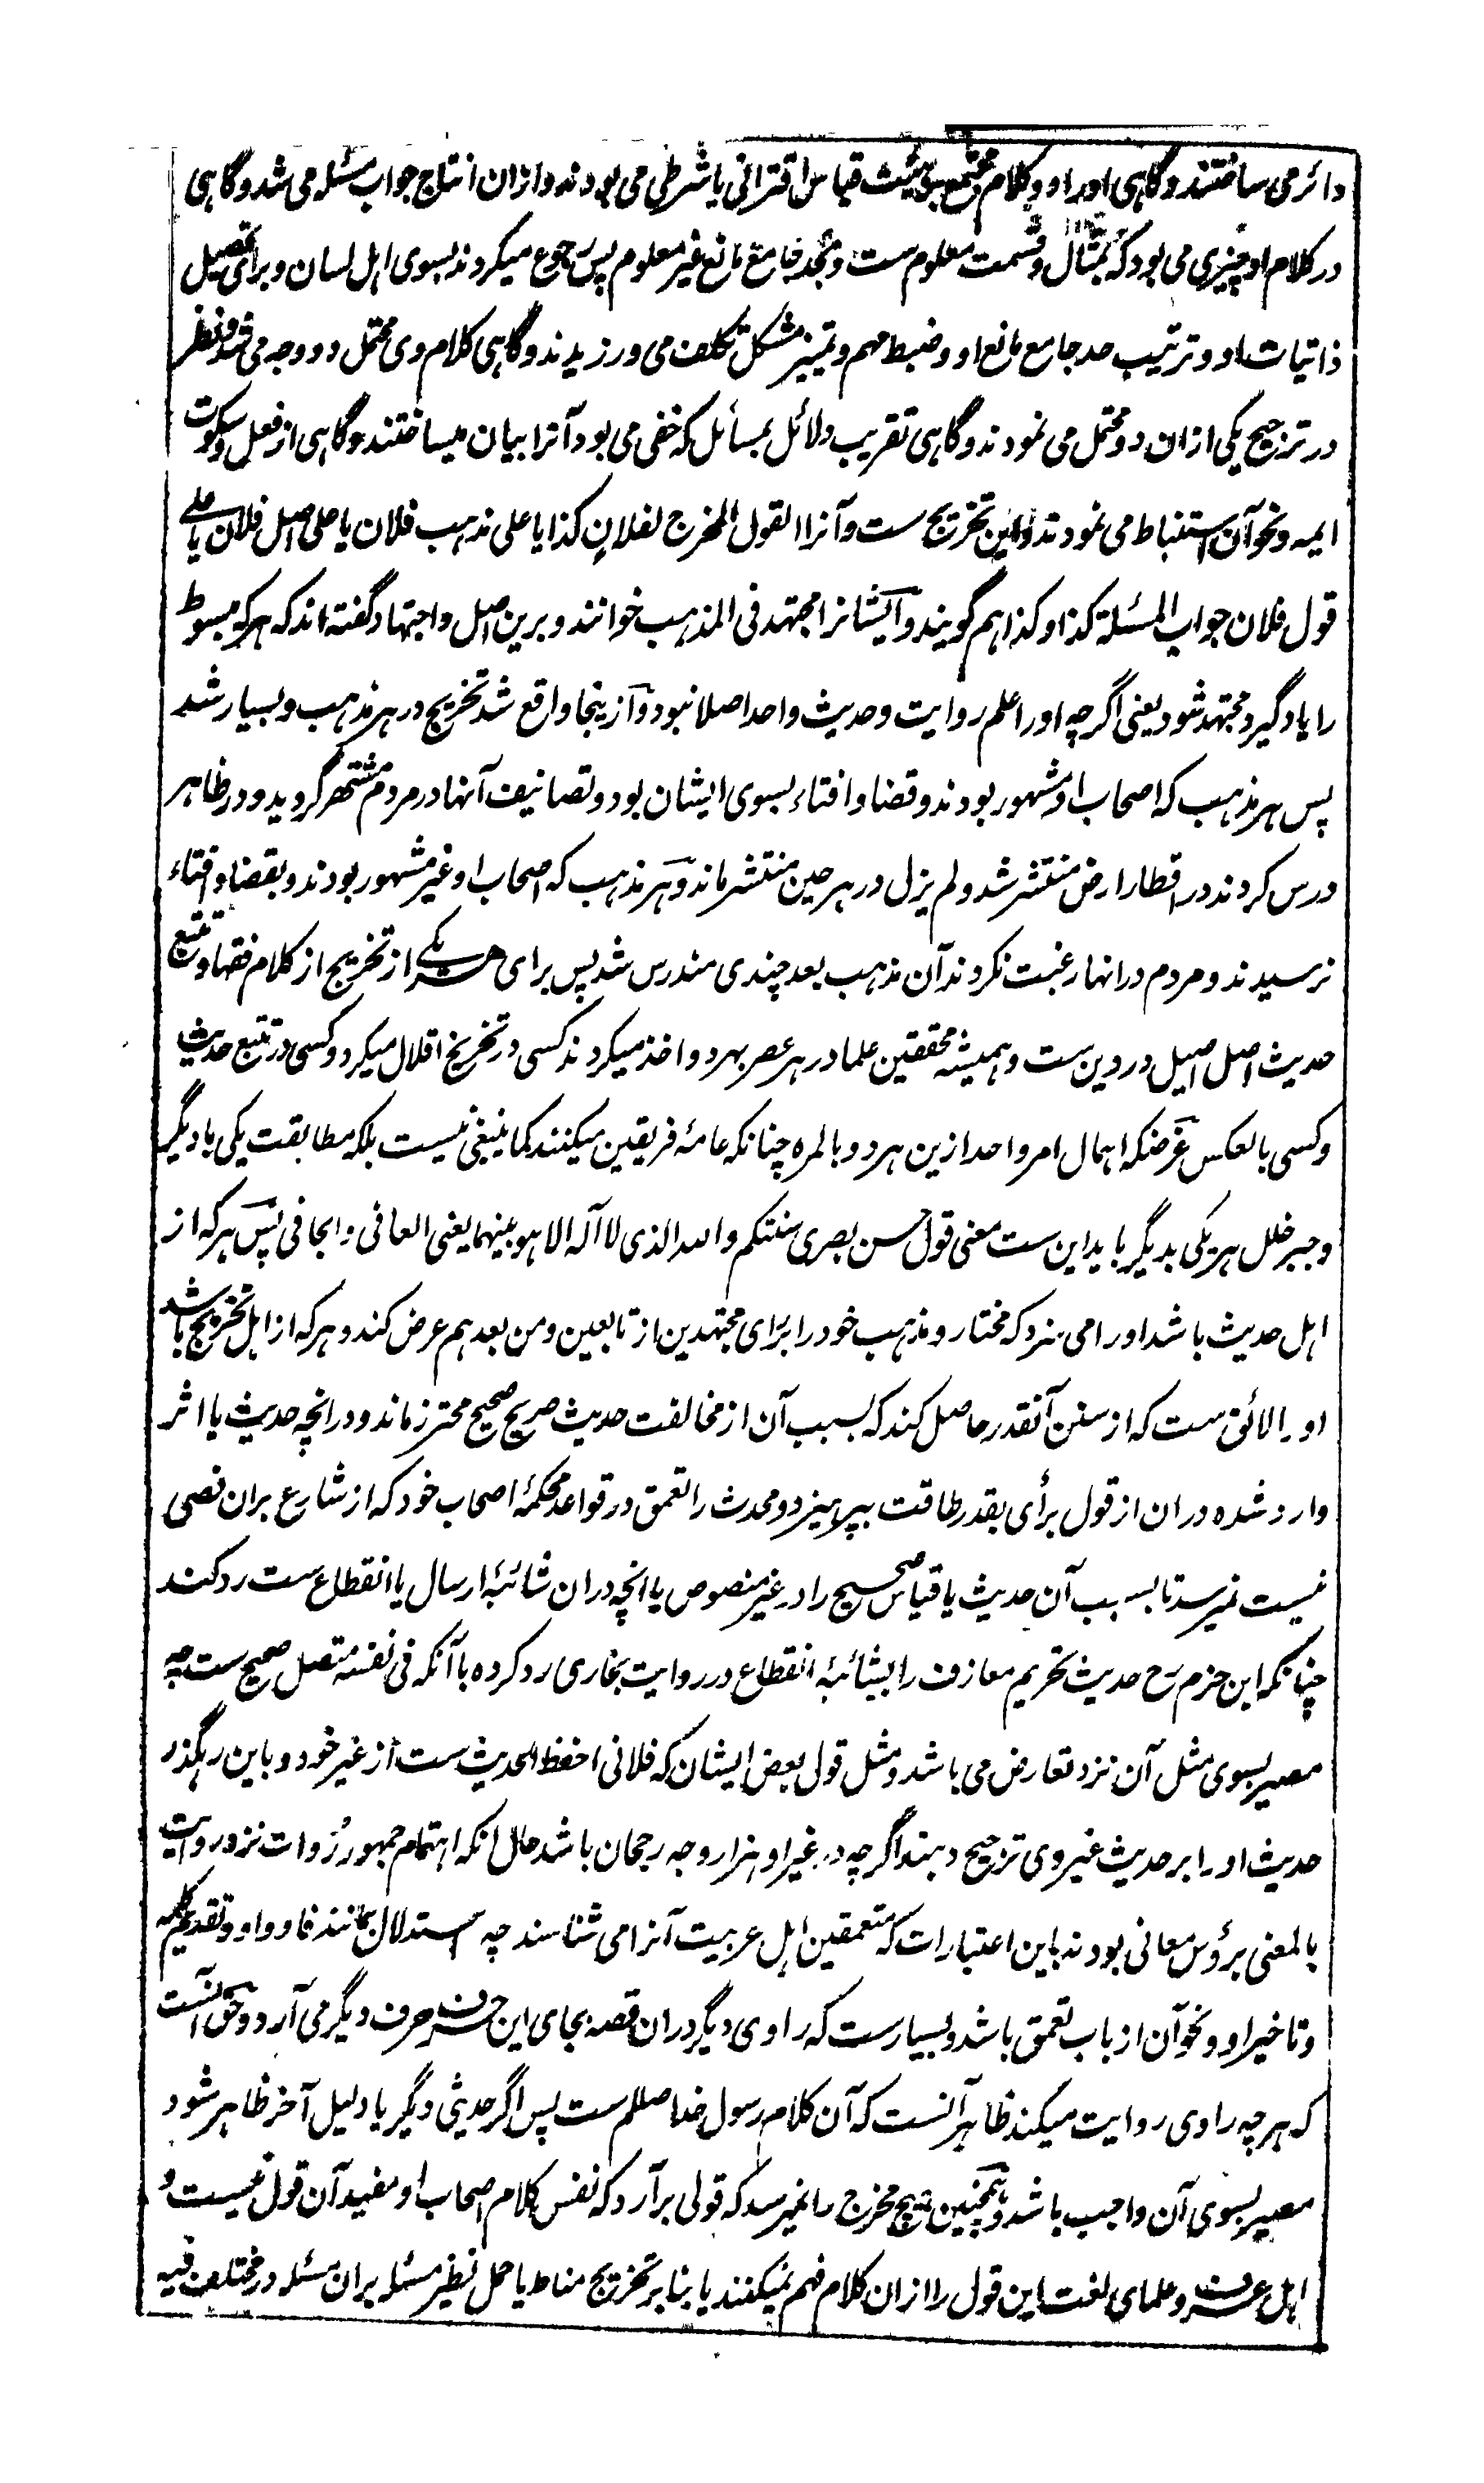 دائر می ساختند و گاهی او را دو کلام مجتمع بر هیئت قیاس اقترانی یا شرطی می بودند و ازان انتاج جواب مسئله می شد و گاهی
در کلام او چیزی می بود که بمثال و قسمت معلوم ست و بحد جامع مانع غیر معلوم پس رجوع میکردند بسوی اهل لسان و برای تحصیل
ذاتیات او و ترتیب حد جامع مانع او و ضبط مبهم و تمییز مشکل تکلف می ورزیدند و گاهی کلام وی محتمل دو وجه می شد و نظر
در ترجیح یکی ازان دو محتمل می نمودند و گاهی تقریب دلائل بمسائل که خفی می بود آنرا بیان میساختند و گاهی از فعل و سکوت
ایمه و نحو آن استنباط می نمودند و این تخریج ست و آنرا القول المخرج لفلان کذا یا علی مذهب فلان یا علی اصل فلان یا علی
قول فلان جواب المسئلة کذا و کذا هم گویند و ایشانرا مجتهد فی المذهب خوانند و برین اصل و اجتهاد گفته اند که هر که مبسوط
را یاد گیرد مجتهد شود یعنی اگرچه او را علم روایت و حدیث واحد اصلا نبود و ازینجا واقع شد تخریج در هر مذهب و بسیار شد
پس هر مذهب که اصحاب او مشهور بودند و قضا و افتاء بسوی ایشان بود و تصانیف آنها در مردم مشتهر گردید و در ظاهر
درس کردند در اقطار ارض منتشر شد و لم یزل در هر حین منتشر ماند و هر مذهب که اصحاب او غیر مشهور بودند و بقضا و افتاء
نرسیدند و مردم در انها رغبت نکردند آن مذهب بعد چندی مندرس شد پس برای هر یکے از تخریج از کلام فقها و تتبع
حدیث اصل اصیل در دین ست و همیشه محققین علما در هر عصر بهر دو اخذ میکردند کسی در تخریج اقلال میکرد و کسی در تتبع حدیث
و کسی بالعکس غرضکه اهمال امر واحد ازین هر دو بالمره چنانکه عامهٔ فریقین میکنند کما ینبغی نیست بلکه مطابقت یکی با دیگر
و جبر خلل هر یکی بدیگر باید این ست معنی قول حسن بصری سنتکم والله الذی لا اله الا هو بینهما یعنی الغالی و الجافی پس هر که از
اهل حدیث باشد او را می سزد که مختار و مذهب خود را برای مجتهدین از تابعین و من بعد هم عرض کند و هر که از اهل تخریج باشد
او را لائق ست که از سنن آنقدر حاصل کند که بسبب آن از مخالفت حدیث صریح صحیح محترز ماند و در انچه حدیث یا اثر
وارد شده دران از قول برأی بقدر طاقت بپرهیزد و محدث را تعمق در قواعد محکمهٔ اصحاب خود که از شارع بران نصی
نیست نمیرسد تا بسبب آن حدیث یا قیاس صحیح را در غیر منصوص یا انچه دران شائبهٔ ارسال یا انقطاع ست رد کند
چنانکه ابن حزم رح حدیث تحریم معازف را بشائبهٔ انقطاع در روایت بخاری رد کرده با آنکه فی نفسه متصل صحیح ست چه
مصیر بسوی مثل آن نزد تعارض می باشد و مثل قول بعض ایشان که فلانی احفظ الحدیث ست از غیر خود و باین رهگذر
حدیث او را بر حدیث غیر وی ترجیح دهند اگرچه در غیر او هزار وجه رجحان باشد حال انکه اهتمام جمهور رُوات نزد روایت
بالمعنی برؤس معانی بود نه باین اعتبارات که متعمقین اهل عربیت آنرا می شناسند چه استدلال بمانند فا و واو و تقدیم کلمه
و تاخیر او و نحو آن از باب تعمق باشد و بسیار ست که راوی دیگر دران قصه بجای این حرف حرف دیگر می آرد و حق آنست
که هرچه راوی روایت میکند ظاهر آنست که آن کلام رسول خدا صللم ست پس اگر حدیثی دیگر یا دلیل آخر ظاهر شود
مصیر بسوی آن واجب باشد و همچنین هیچ مخرج را نمیرسد که قولی برآرد که نفس کلام اصحاب او مفید آن قول نیست و
اهل عرف و علمای لغت این قول را ازان کلام فهم نمیکنند یا بنا بر تخریج مناط یا حمل نظیر مسئله بران مسئله در مختلف فیه